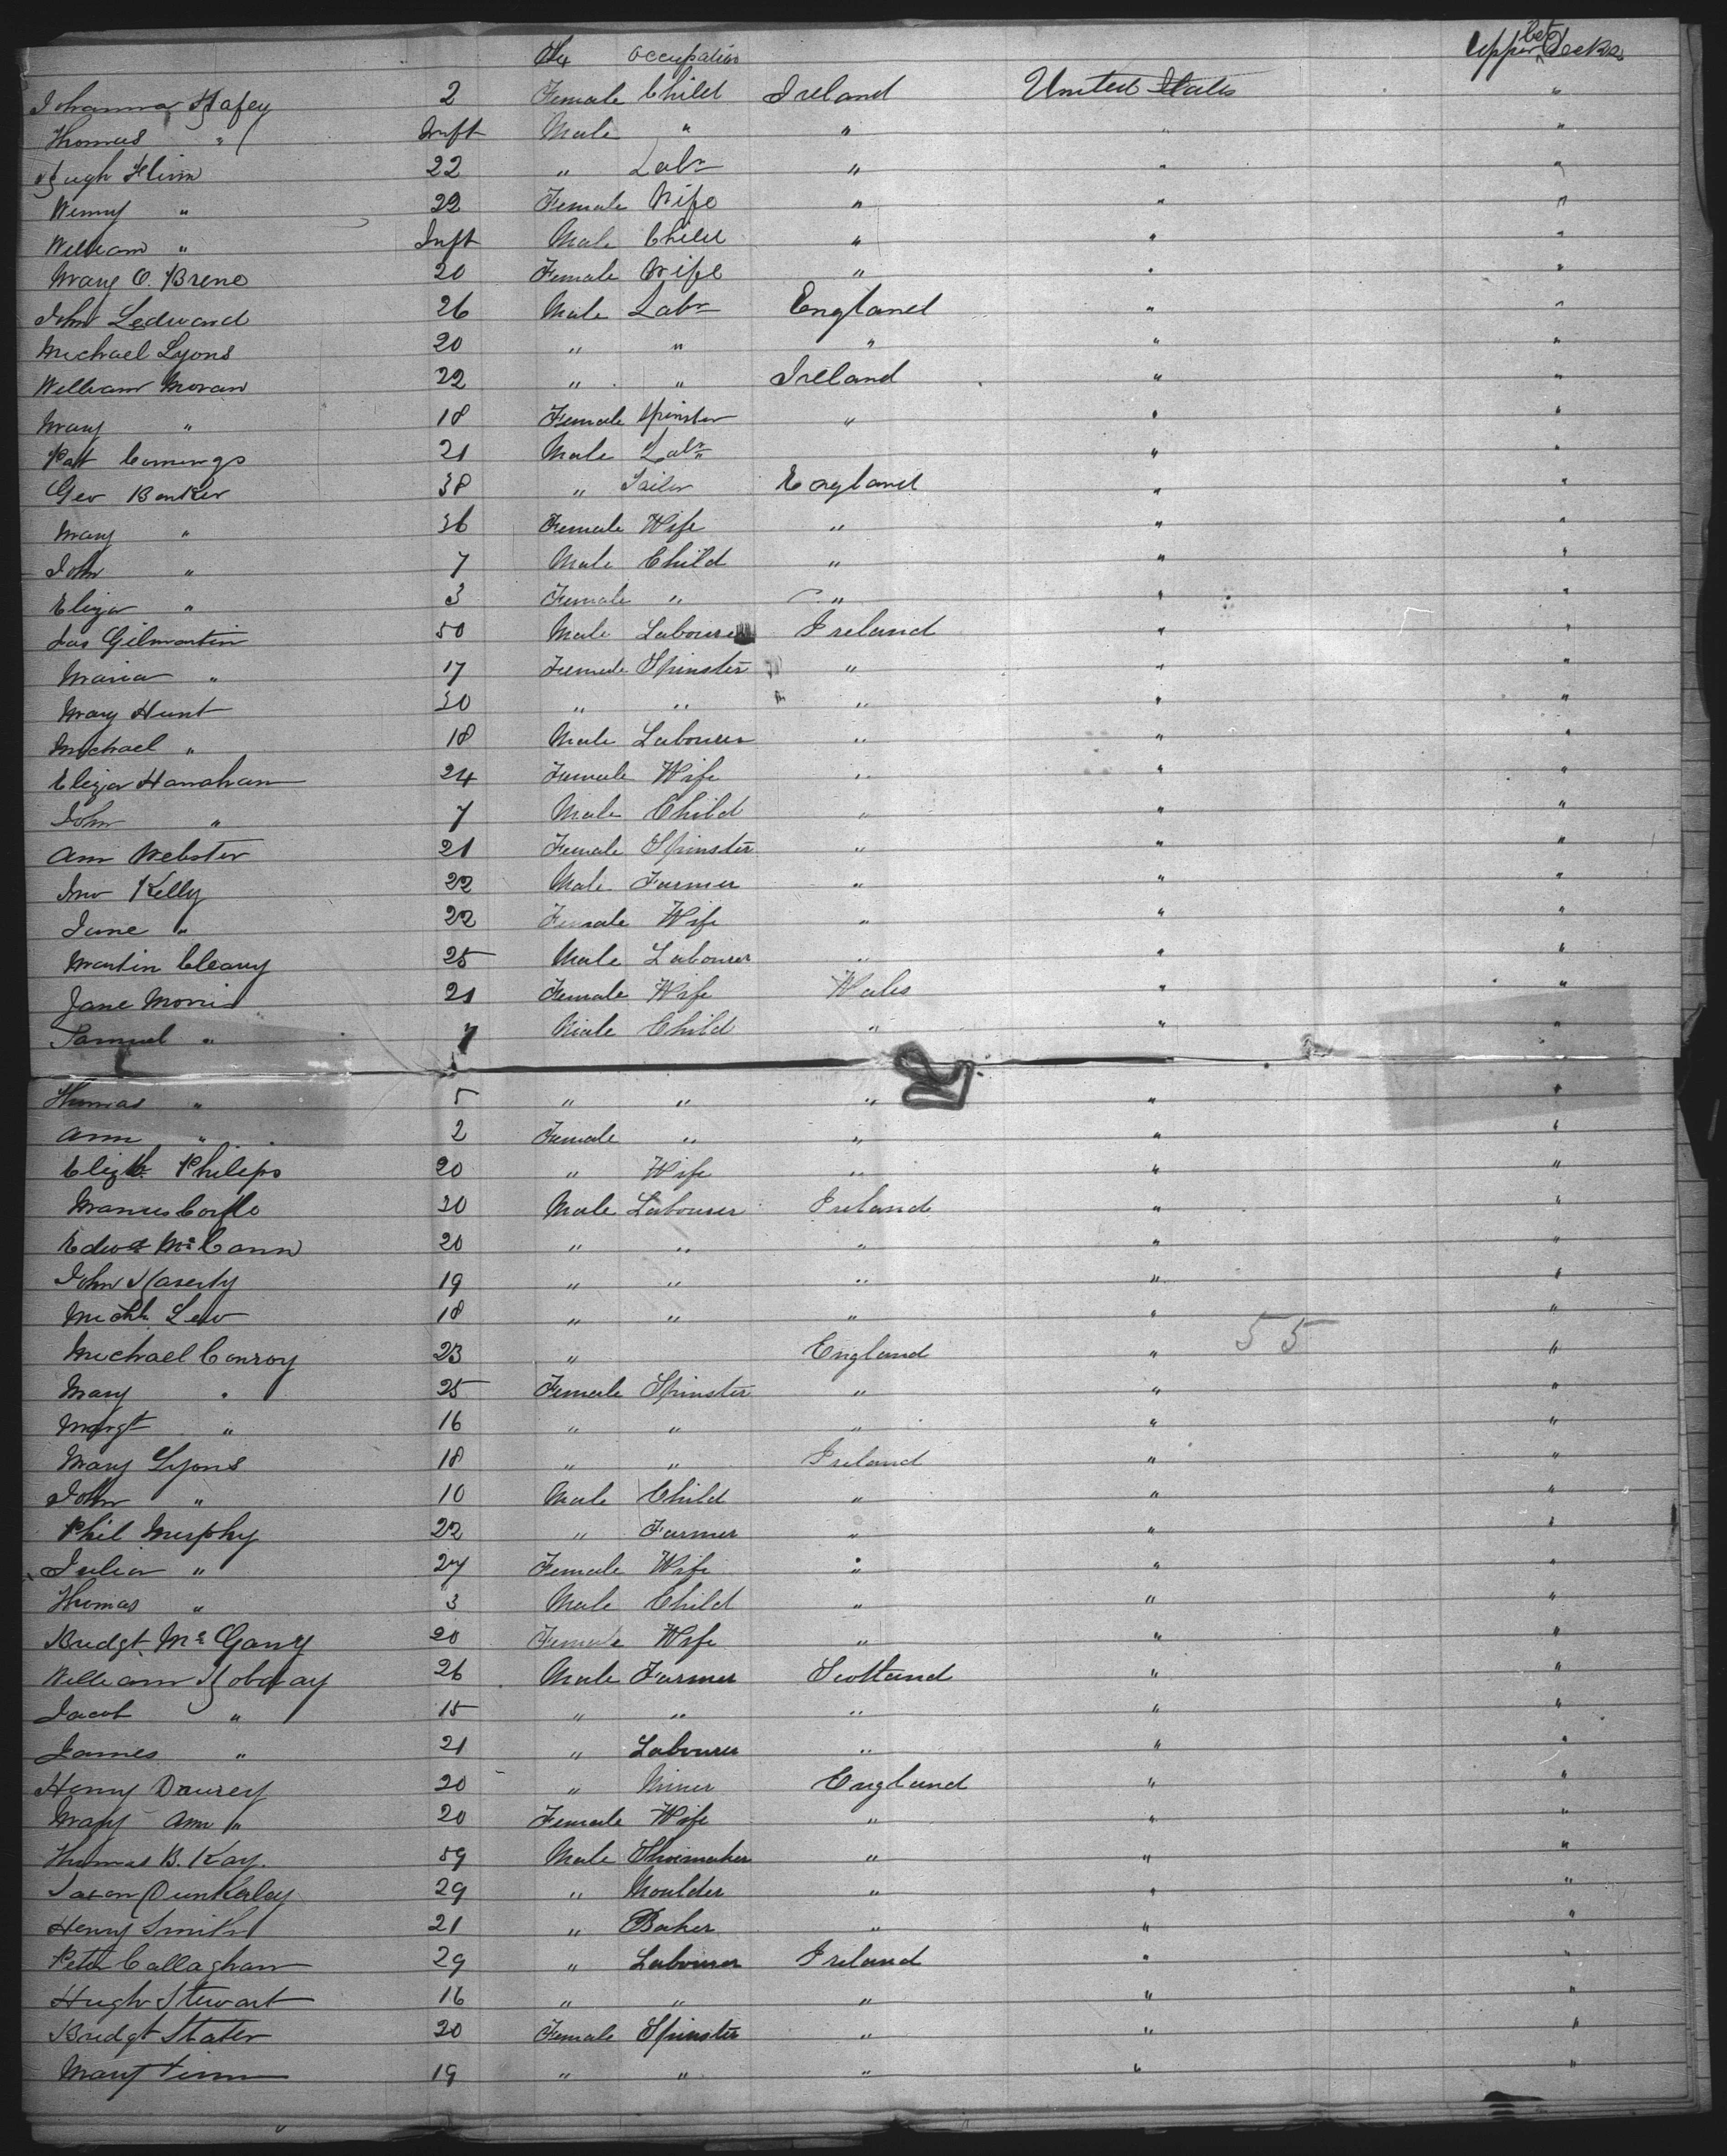 occupation Upper bet Decks
Johanna Hafey 2 Female Child Ireland United States "
Thomas " Inft Male " " " "
Hugh Flinn 22 " Labr " " "
Winny " 22 Female Wife " " "
William " Inft Male Child " " "
Mary O. Brene 20 Female Wife " " "
John Ledward 26 Male Labr England " "
Michael Lyons 20 " " " " "
William Moran 22 " " Ireland " "
Mary " 18 Female Spinster " " "
Patt Comings 21 Male Labr " "
Geo Barker 38 " Tailor England " "
Mary " 36 Female Wife " " "
John " 7 Male Child " " "
Eliza " 3 Female " " " "
Jas Gilmartin 50 Male Labourer Ireland " "
Maria " 17 Female Spinster " " "
Mary Hunt 30 " " " " "
Michael " 18 Male Labourer " " "
Eliza Hanahan 24 Female Wife " " "
John " 7 Male Child " " "
Ann Webster 21 Female Spinster " " "
Jno Kelly 22 Male Farmer " " "
Jane " 22 Female Wife " " "
Martin Cleary 25 Male Labourer " " "
Jane Morris 21 Female Wife Wales " "
Samuel " 7 Male Child " " "
Thomas " 5 " " " " "
Ann " 2 Female " " " "
Elizth Philips 20 " Wife " " "
Manus 20 Male Labourer Ireland " "
Edwd McCann 20 " " " " "
John Haserty 19 " " " " "
Michl Leo 18 " " " " "
Michael Conroy 23 " England " 55 "
Mary " 25 Female Spinster " " "
Margt " 16 " " " " "
Mary Lyons 18 " " Ireland " "
John " 10 Male Child " " "
Phil Murphy 22 " Farmer " " "
Julia " 27 Female Wife " " "
Thomas " 3 Male Child " " "
Bridgt McGany 20 Female Wife " " "
William Hobday 26 Male Farmer Scotland " "
Jacob " 15 " " " " "
James " 21 " Labourer " " "
Henry Daurey 20 " Miner England " "
Mary Ann " 20 Female Wife " " "
Thomas B. Kay. 59 Male Shoemaker " " "
Jason Dunkerley 29 " Moulder " " "
Henry Smith 21 " Baker " " "
Peter Callaghan 29 " Labourer Ireland " "
Hugh Stewart 16 " " " " "
Bridgt Slater 20 Female Spinster " " "
Mary Finn 19 " " " " "